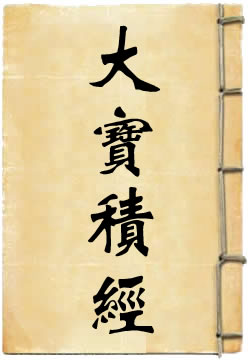 大寶積經